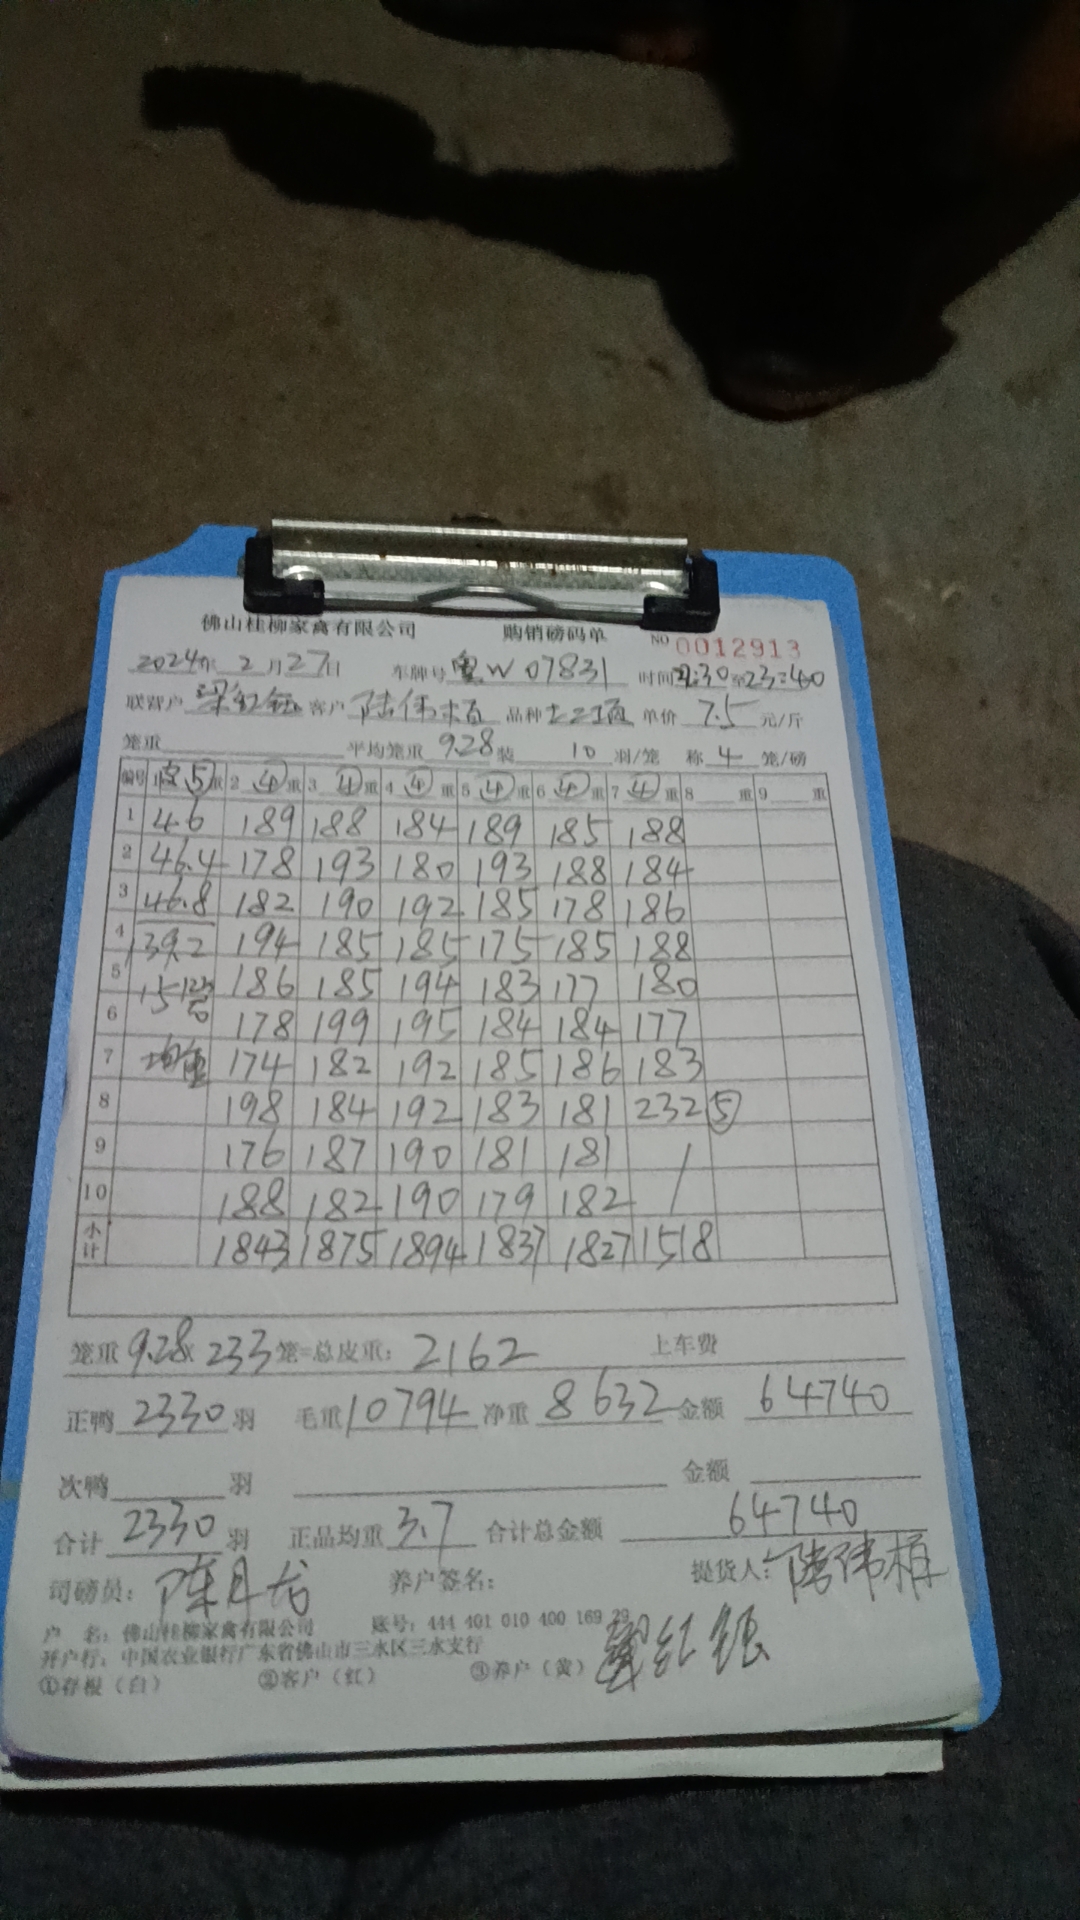 佛山桂柳家禽有限公司 购销磅码单 NO 0012913
2024年 2月27日 车牌号 粤W07831 时间 :30至23:40
联营户 梁红 客户 陆伟 品种 土二项 单价 7.5 元/斤
笼重 平均笼重 9.28 装 10 羽/笼 称 4 笼/磅
编号 1 ⑤ 重 2 ④ 重 3 ④ 重 4 ④ 重 5 ④ 重 6 ④ 重 7 ④ 重 8 重 9 重
1 46 189 188 184 189 185 188
2 46.4 178 193 180 193 188 184
3 46.8 182 190 192 185 178 186
4 139.2 194 185 185 175 185 188
5 15 186 185 194 183 177 180
6 178 199 195 184 184 177
7 均重 174 182 192 185 186 183
8 198 184 192 183 181 232 ⑤
9 176 187 190 181 181 /
10 188 182 190 179 182 /
小计 1843 1875 1894 1837 1827 1518
笼重 9.28× 233 笼=总皮重: 2162 上车费
正鸭 2330 羽 毛重 10794 净重 8632 金额 64740
次鸭 羽 金额
合计 2330 羽 正品均重 3.7 合计总金额 64740
司磅员: 陈 龙 养户签名: 提货人: 陆伟
户 名: 佛山桂柳家禽有限公司 账号: 444 401 010 400 169 29
开户行: 中国农业银行广东省佛山市三水区三水支行
①存根（白） ②客户（红） ③养户（黄） 红